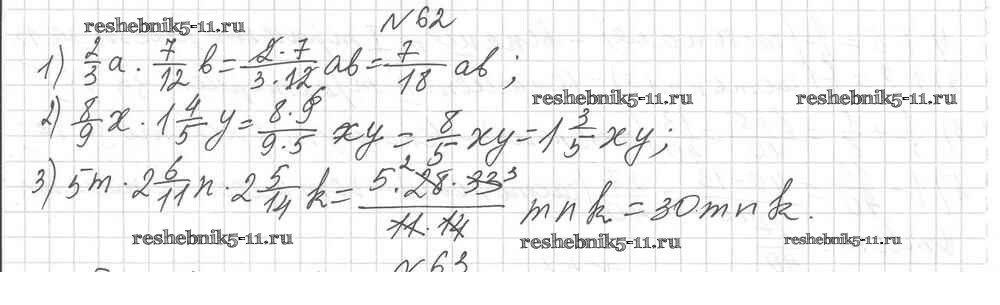 №62
reshebnik5-11.ru
1) 2/3 a · 7/12 b = 2·7/3·12 ab = 7/18 ab;
reshebnik5-11.ru reshebnik5-11.ru
2) 8/9 x · 1 4/5 y = 8·9/9·5 xy = 8/5 xy = 1 3/5 xy;
3) 5m · 2 6/11 n · 2 5/14 k = 5·28·33/11·14 mnk = 30mnk.
reshebnik5-11.ru reshebnik5-11.ru reshebnik5-11.ru
№63